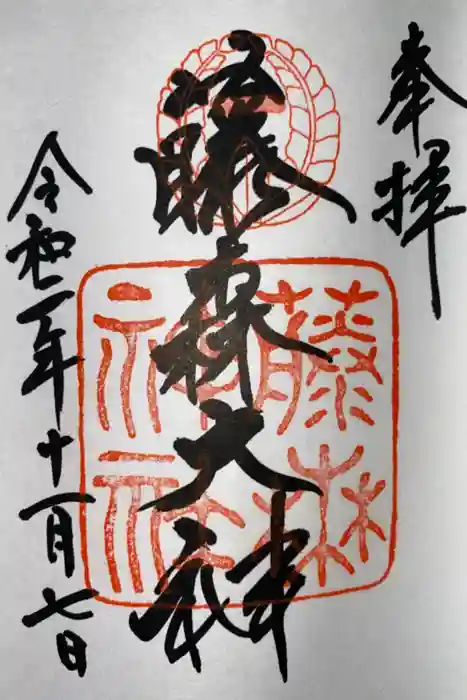 奉拝
藤森大神
藤森
神社
令和二年十一月七日